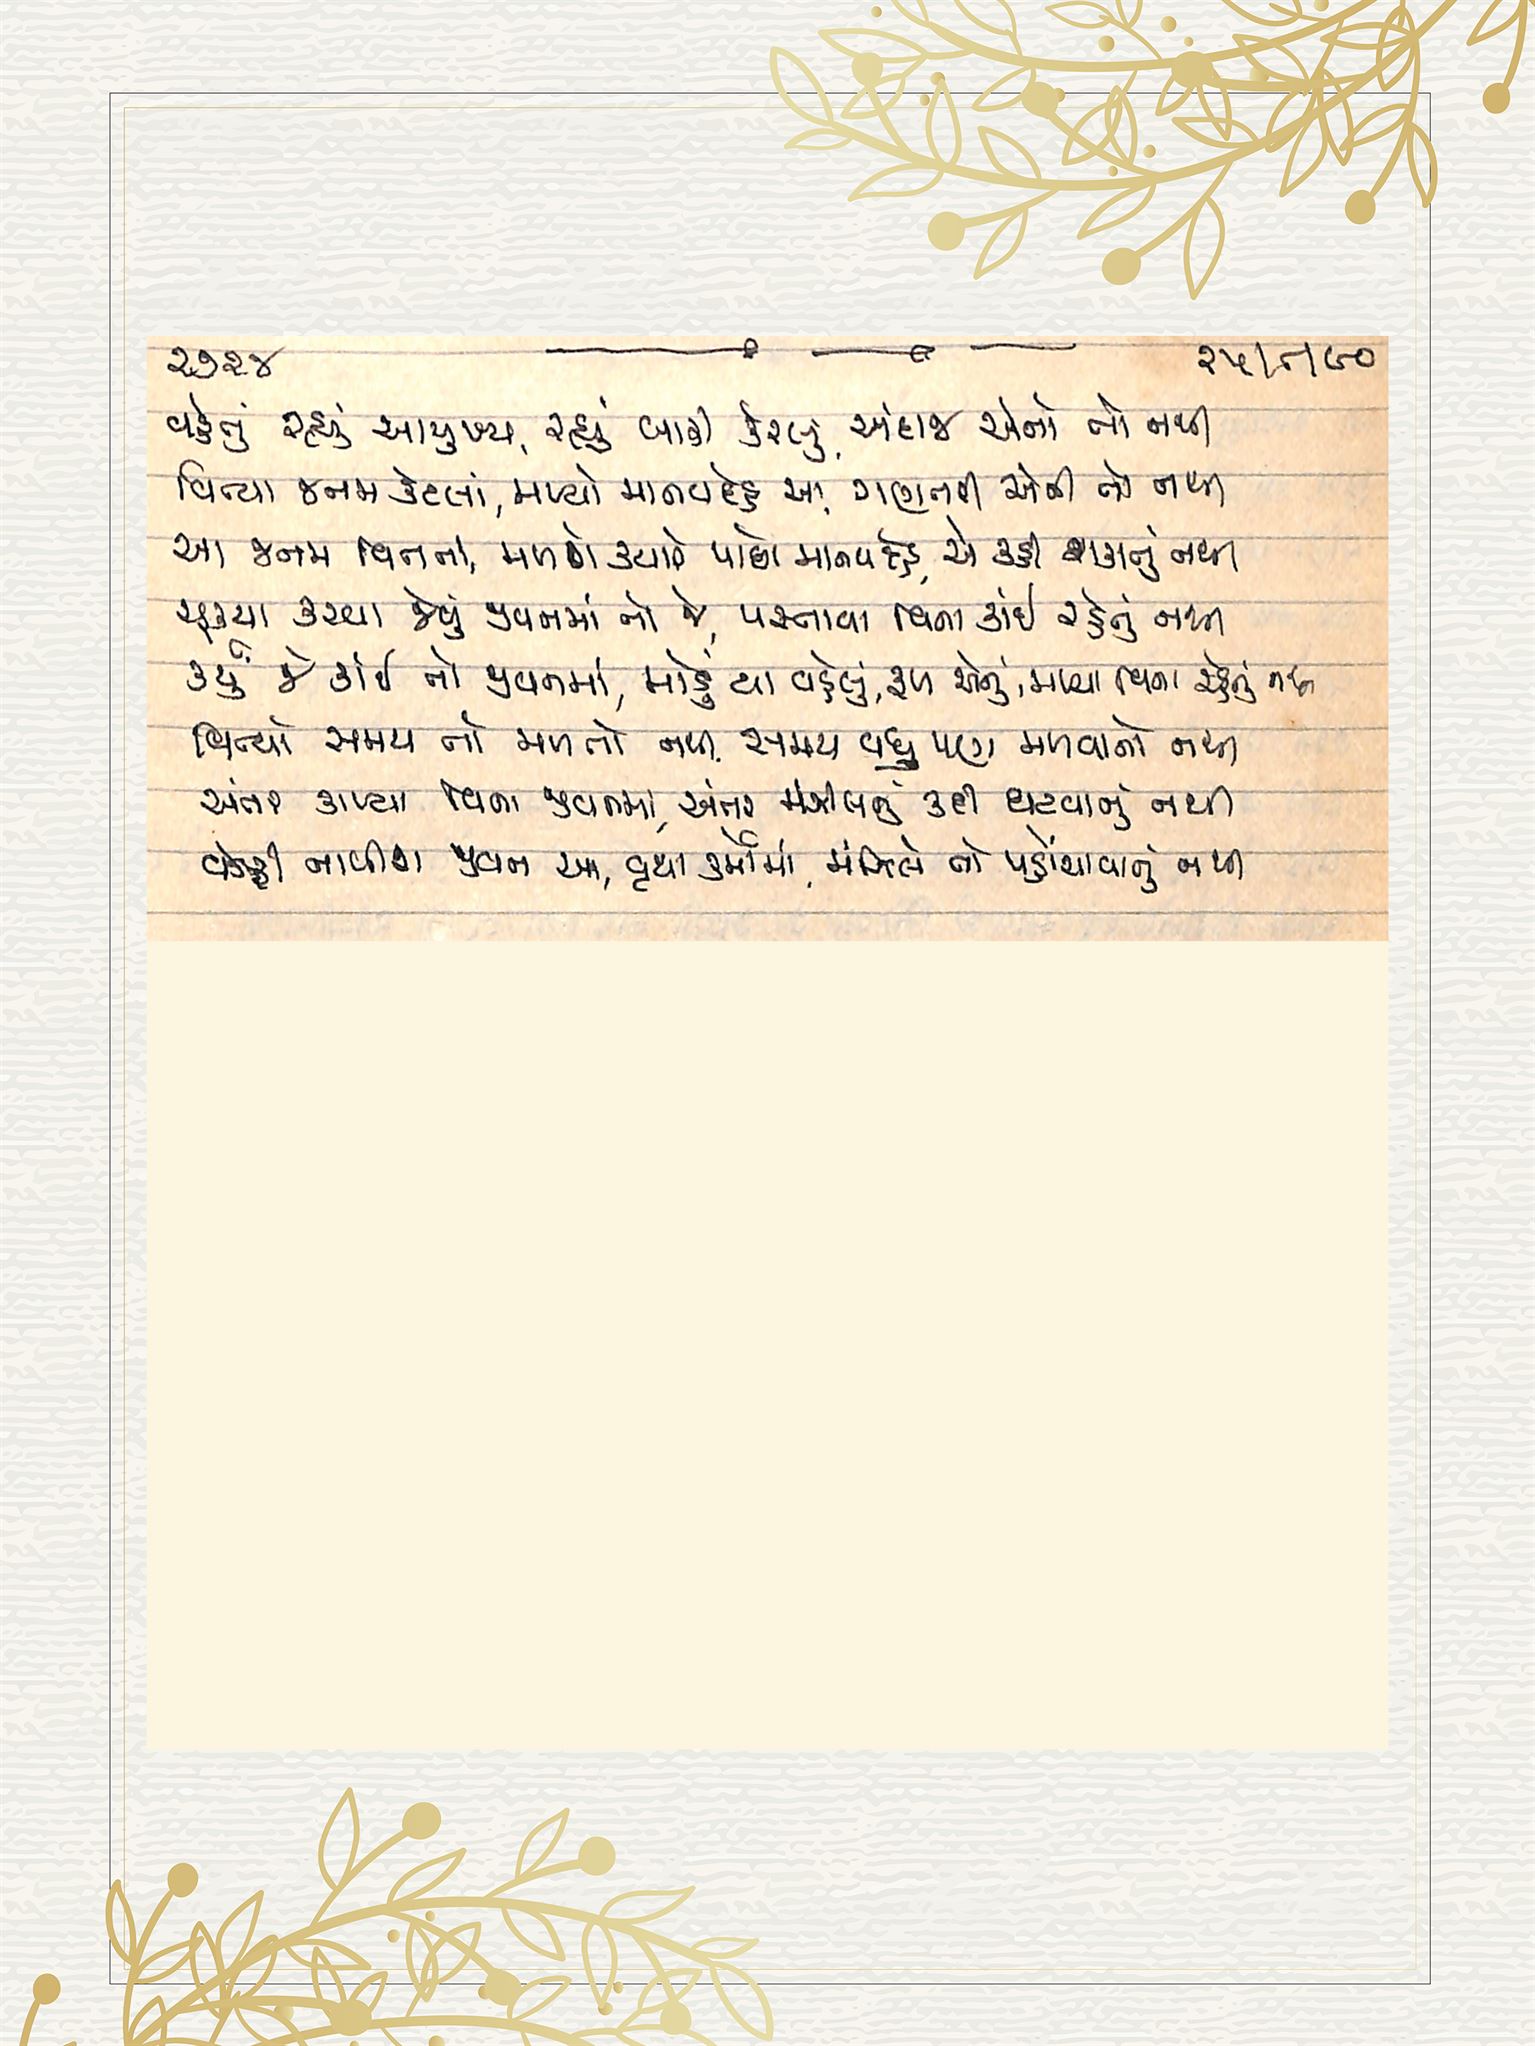 ૨૭૨૪ ૨૫/૮/૯૦
વહેતું રહ્યું આયુષ્ય, રહ્યું બાકી કેટલું, અંદાજ એનો તો નથી
વિત્યા જનમ કેટલાં, મળ્યો માનવદેહ આ, ગણતરી એની તો નથી
આ જનમ વિતતાં, મળશે ક્યારે પાછો માનવદેહ, એ કહી શકાતું નથી
ચૂક્યા કરવા જેવું જીવનમાં તો જે, પસ્તાવા વિના કાંઈ રહેતું નથી
કર્યું જે કાંઈ તો જીવનમાં, મોડું યા વહેલું, ફળ એનું, મળ્યા વિના રહેતું નથી
વિત્યો સમય તો મળતો નથી, સમય વધુ પણ મળવાનો નથી
અંતર કાપ્યા વિના જીવનમાં, અંતર મંઝીલનું કદી ઘટવાનું નથી
વેડફી નાખીશ જીવન આ, વૃથા કર્મોમાં, મંઝિલે તો પહોંચાવાનું નથી